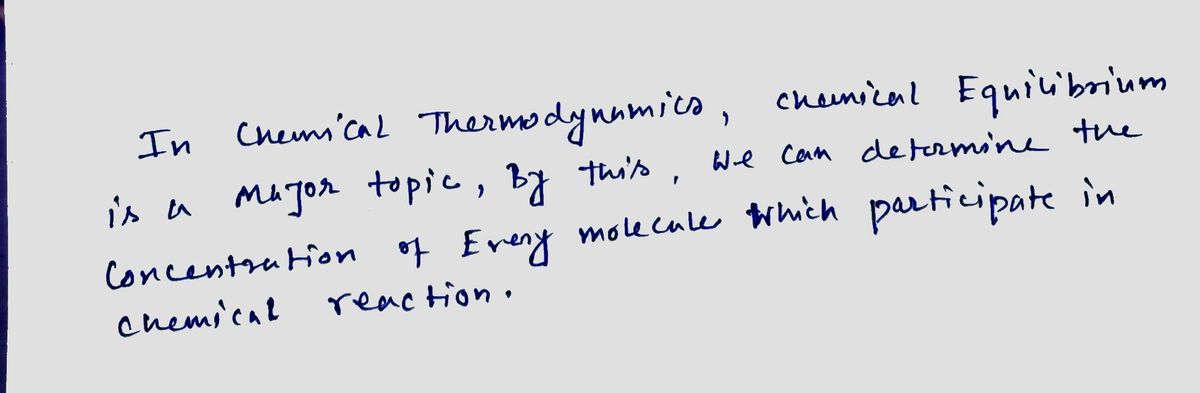 In Chemical Thermodynamics, chemical Equilibrium
is a major topic, By this, We can determine the
Concentration of Every molecules which participate in
chemical reaction.